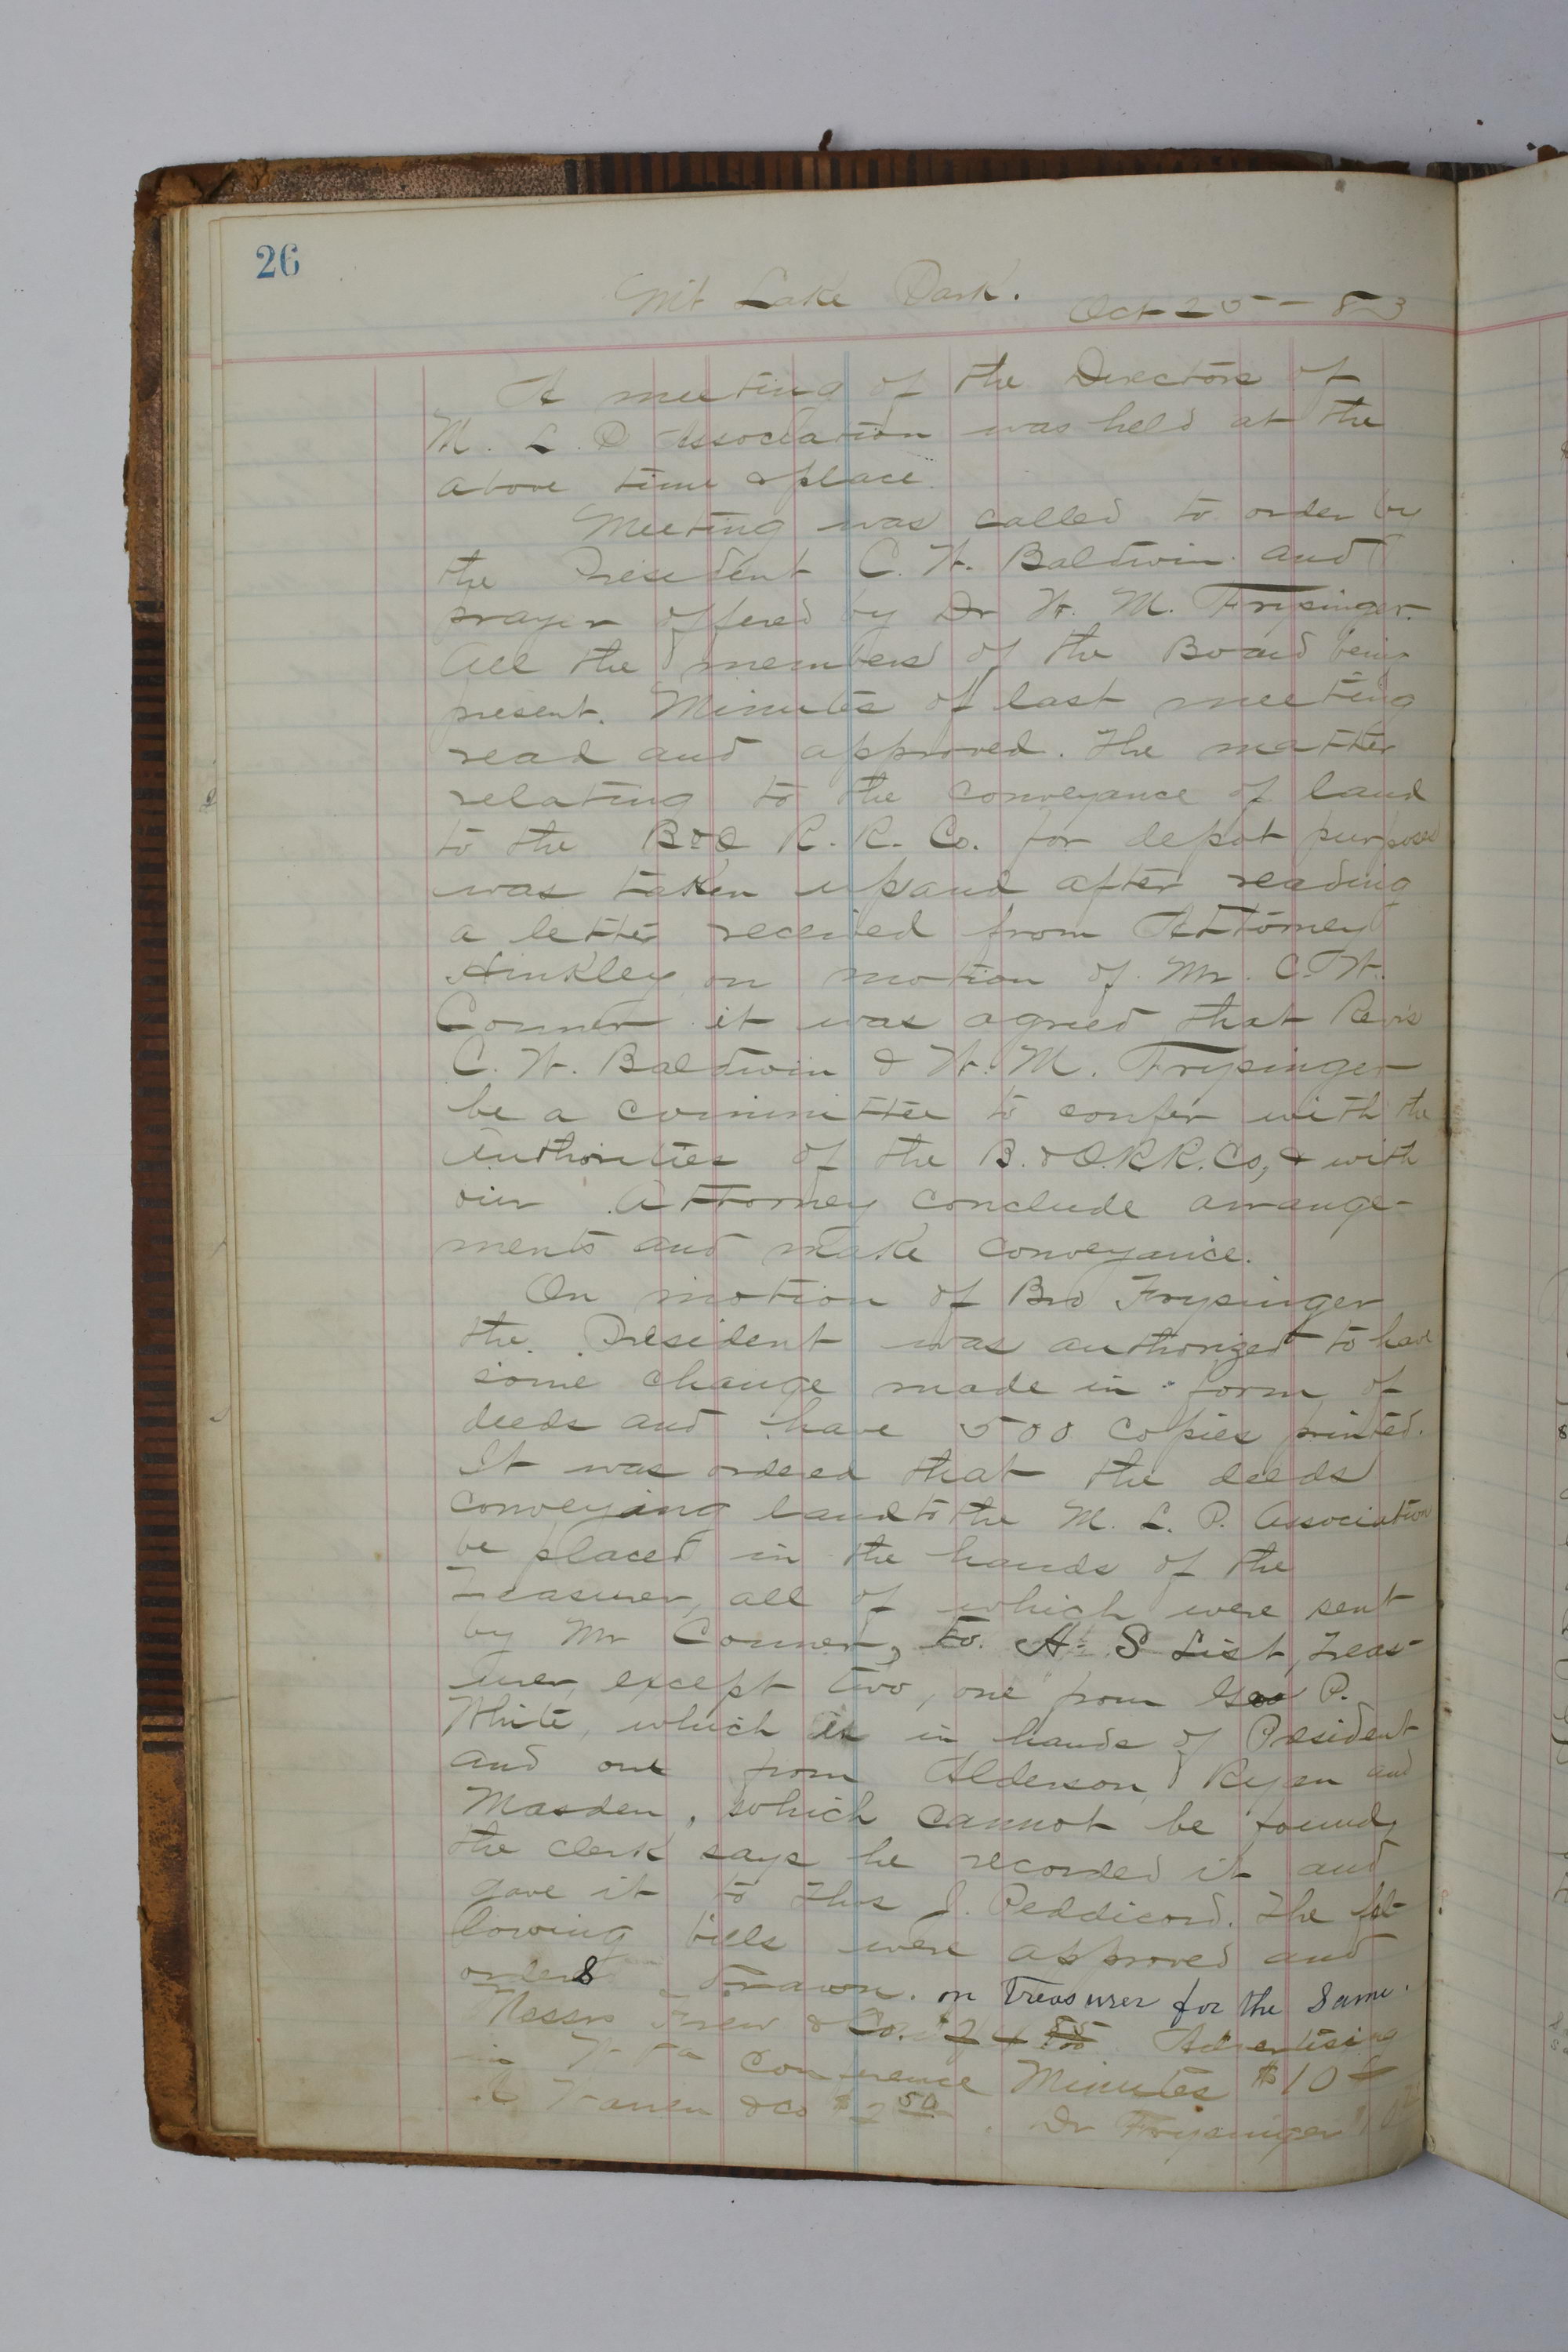 26
Mt Lake Park.
Oct 25 - 83
A meeting of the Directors of
M. L. P Association was held at the
above time & place.
Meeting was called to order by
the President C. W. Baldwin and
prayer offered by Dr W. M. Frysinger.
All the members of the Board being
present. Minutes of last meeting
read and approved. The matter
relating to the conveyance of land
to the B & O R. R. Co. for depot purposes
was taken up and after reading
a letter received from Attorney
Hinkley on motion of Mr. C. W.
Conner it was agreed that Revs
C. W. Baldwin & W. M. Frysinger
be a committee to confer with the
authorities of the B. & O. R R. Co, & with
our Attorney conclude arrange-
ments and make conveyance.
On motion of Bro Frysinger
the President was authorized to have
some change made in form of
deeds and have 500 copies printed.
It was ordered that the deeds
conveying land to the M. L. P. Association
be placed in the hands of the
Treasurer, all of which were sent
by Mr Conner, to A S List, Treas-
urer, except two, one from Geo P.
White, which is in hands of President
and one from Alderson, Ryan and
Masden, which cannot be found,
the clerk says he recorded it and
gave it to Thos J. Peddicord. The fol-
lowing bills were approved and
orders drawn. on Treasurer for the Same.
Messrs Frew & Co. Advertising
in Conference Minutes $10
& Co $2 50. Dr Frysinger